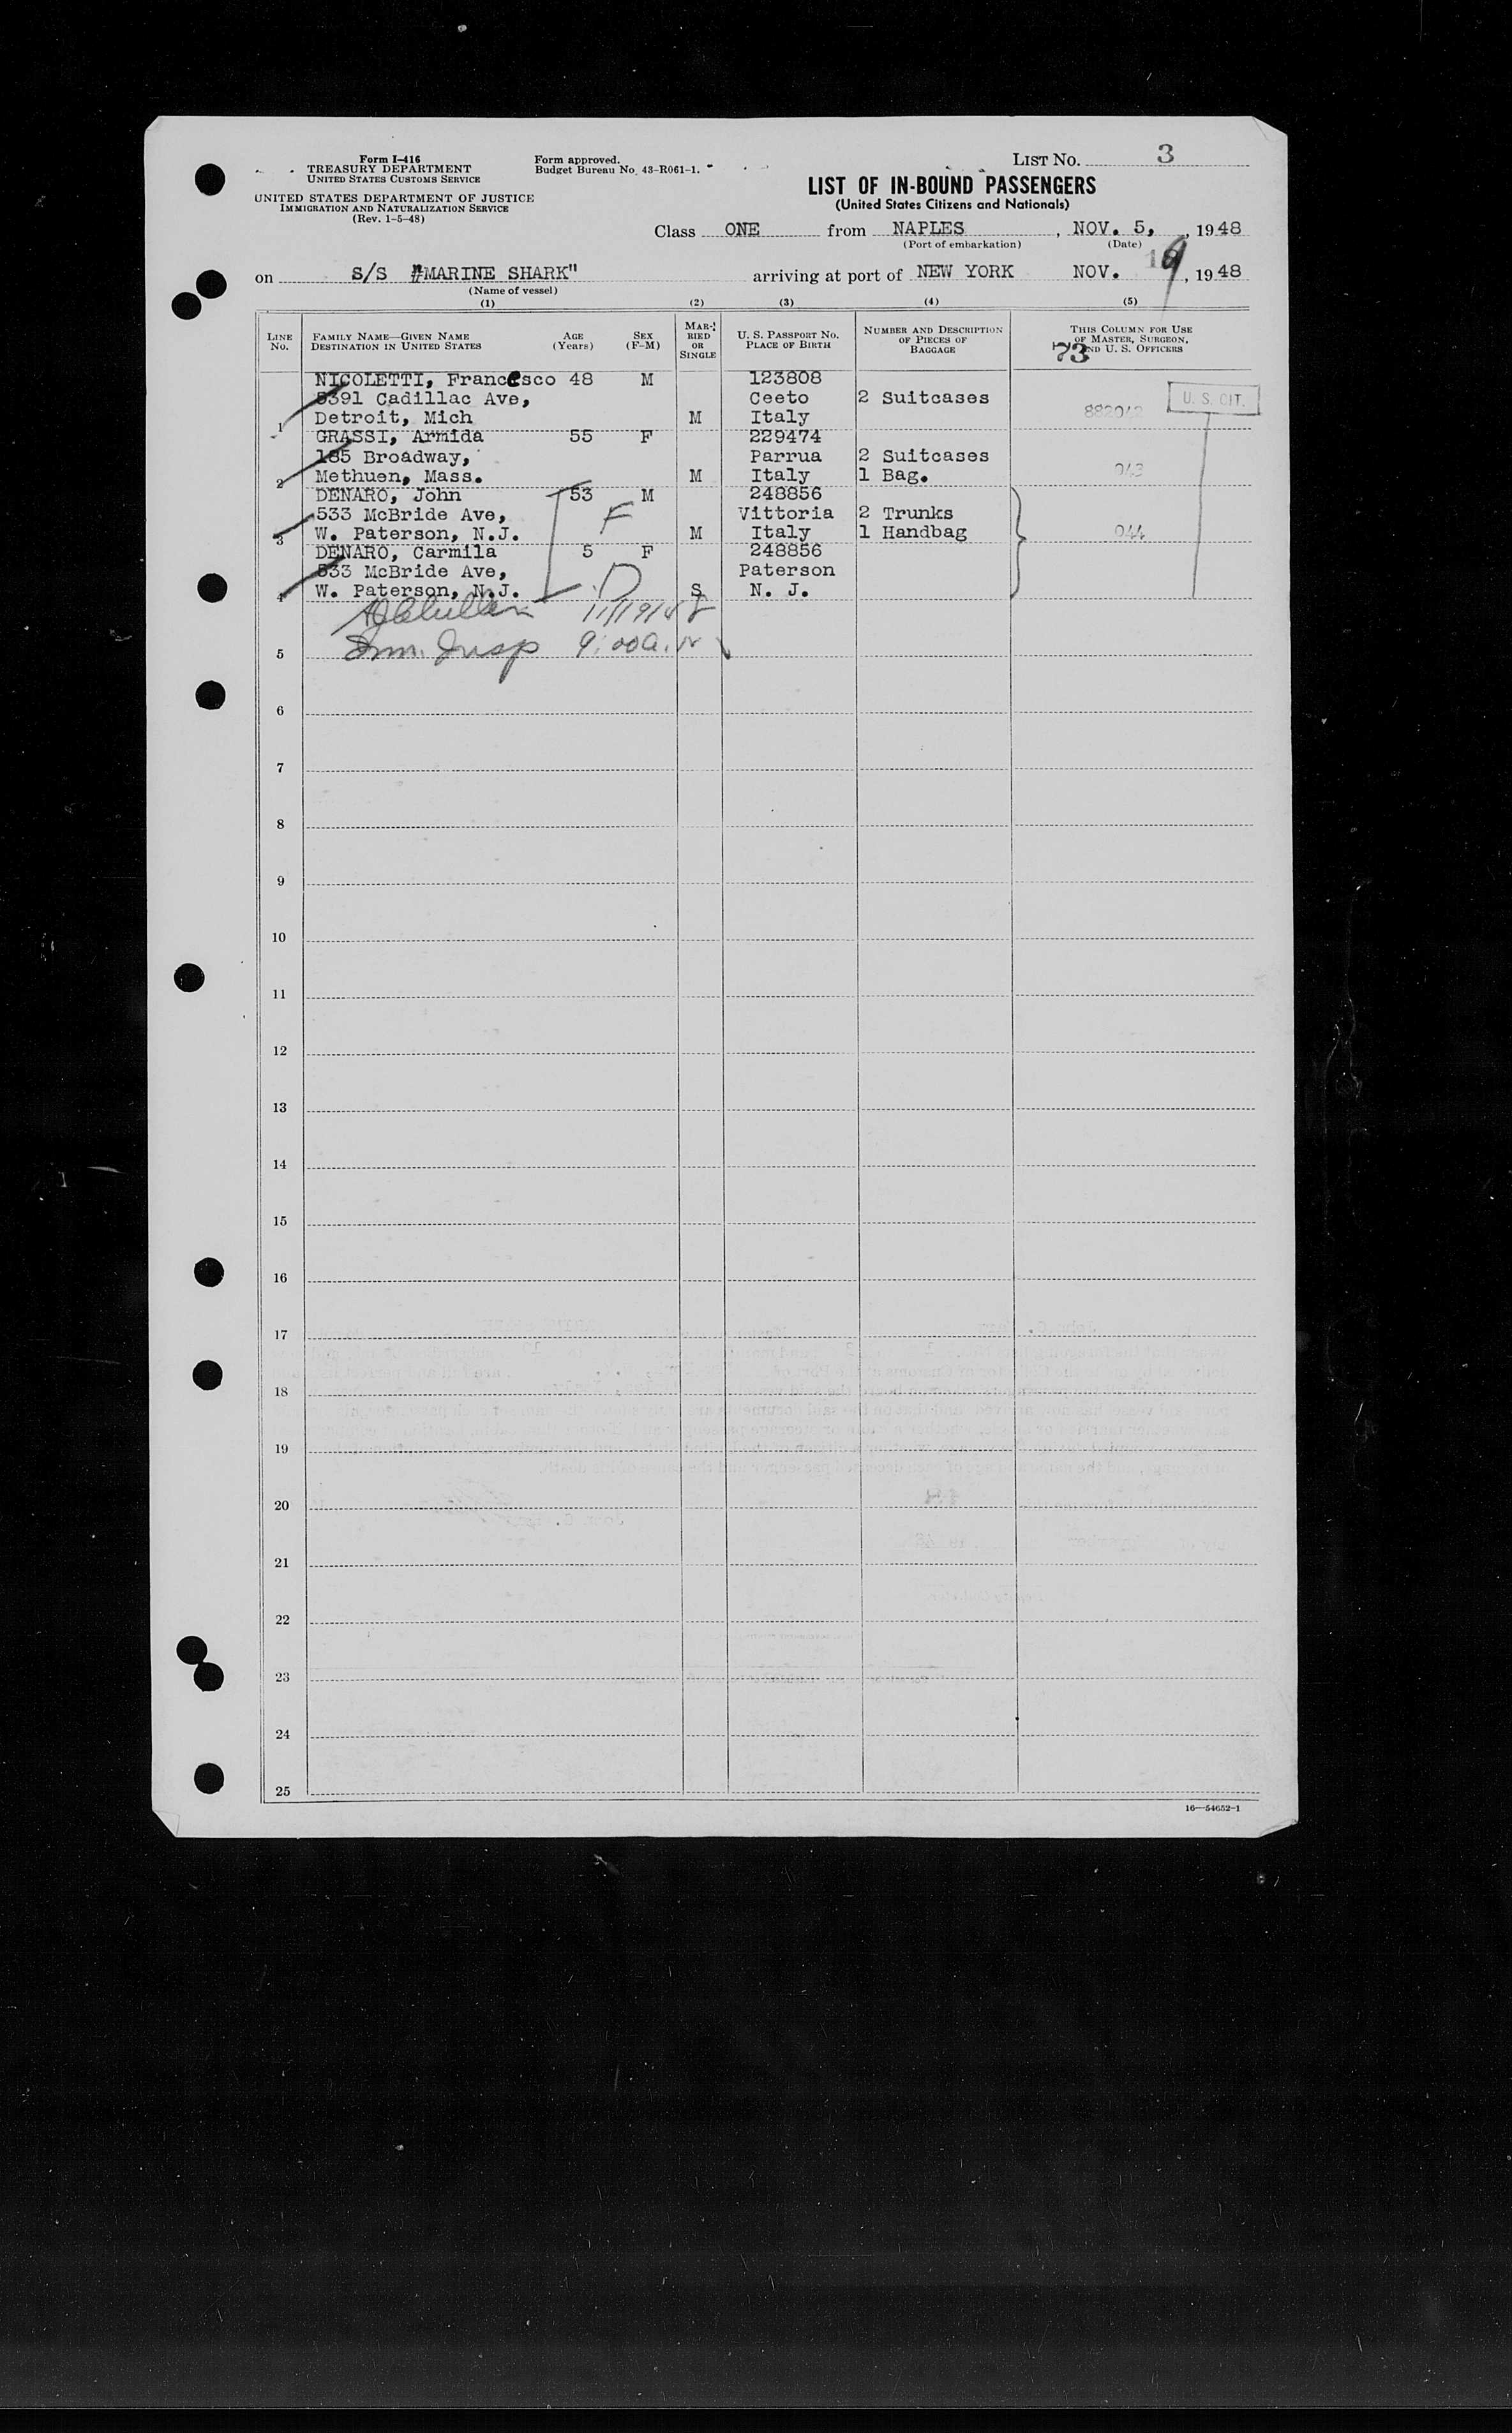 Form I-416
TREASURY DEPARTMENT
UNITED STATES CUSTOMS SERVICE
UNITED STATES DEPARTMENT OF JUSTICE
IMMIGRATION AND NATURALIZATION SERVICE
(Rev. 1-5-48)
Form approved.
Budget Bureau No. 43-R061-1.
LIST NO. 3
LIST OF IN-BOUND PASSENGERS
(United States Citizens and Nationals)
Class ONE from NAPLES, NOV. 5, 1948
(Port of embarkation) (Date)
on S/S "MARINE SHARK" arriving at port of NEW YORK NOV. 19, 1948
(Name of vessel)
(1) (2) (3) (4) (5)
LINE NO.
FAMILY NAME—GIVEN NAME
DESTINATION IN UNITED STATES
AGE (Years)
SEX (F-M)
MARRIED OR SINGLE
U. S. PASSPORT NO.
PLACE OF BIRTH
NUMBER AND DESCRIPTION OF PIECES OF BAGGAGE
THIS COLUMN FOR USE OF MASTER, SURGEON, AND U. S. OFFICERS
73
NICOLETTI, Francesco 48 M 123808
5391 Cadillac Ave, Ceeto 2 Suitcases U. S. CIT.
1 Detroit, Mich M Italy 882042
GRASSI, Armida 55 F 229474
185 Broadway, Parrua 2 Suitcases
2 Methuen, Mass. M Italy 1 Bag. 043
DENARO, John 53 M 248856
533 McBride Ave, F Vittoria 2 Trunks
3 W. Paterson, N.J. M Italy 1 Handbag 044
DENARO, Carmila 5 F 248856
533 McBride Ave, D Paterson
4 W. Paterson, N.J. S N. J.
11/19/48
5 Imm. Insp 9:00 a.m
6
7
8
9
10
11
12
13
14
15
16
17
18
19
20
21
22
23
24
25
16—54652-1